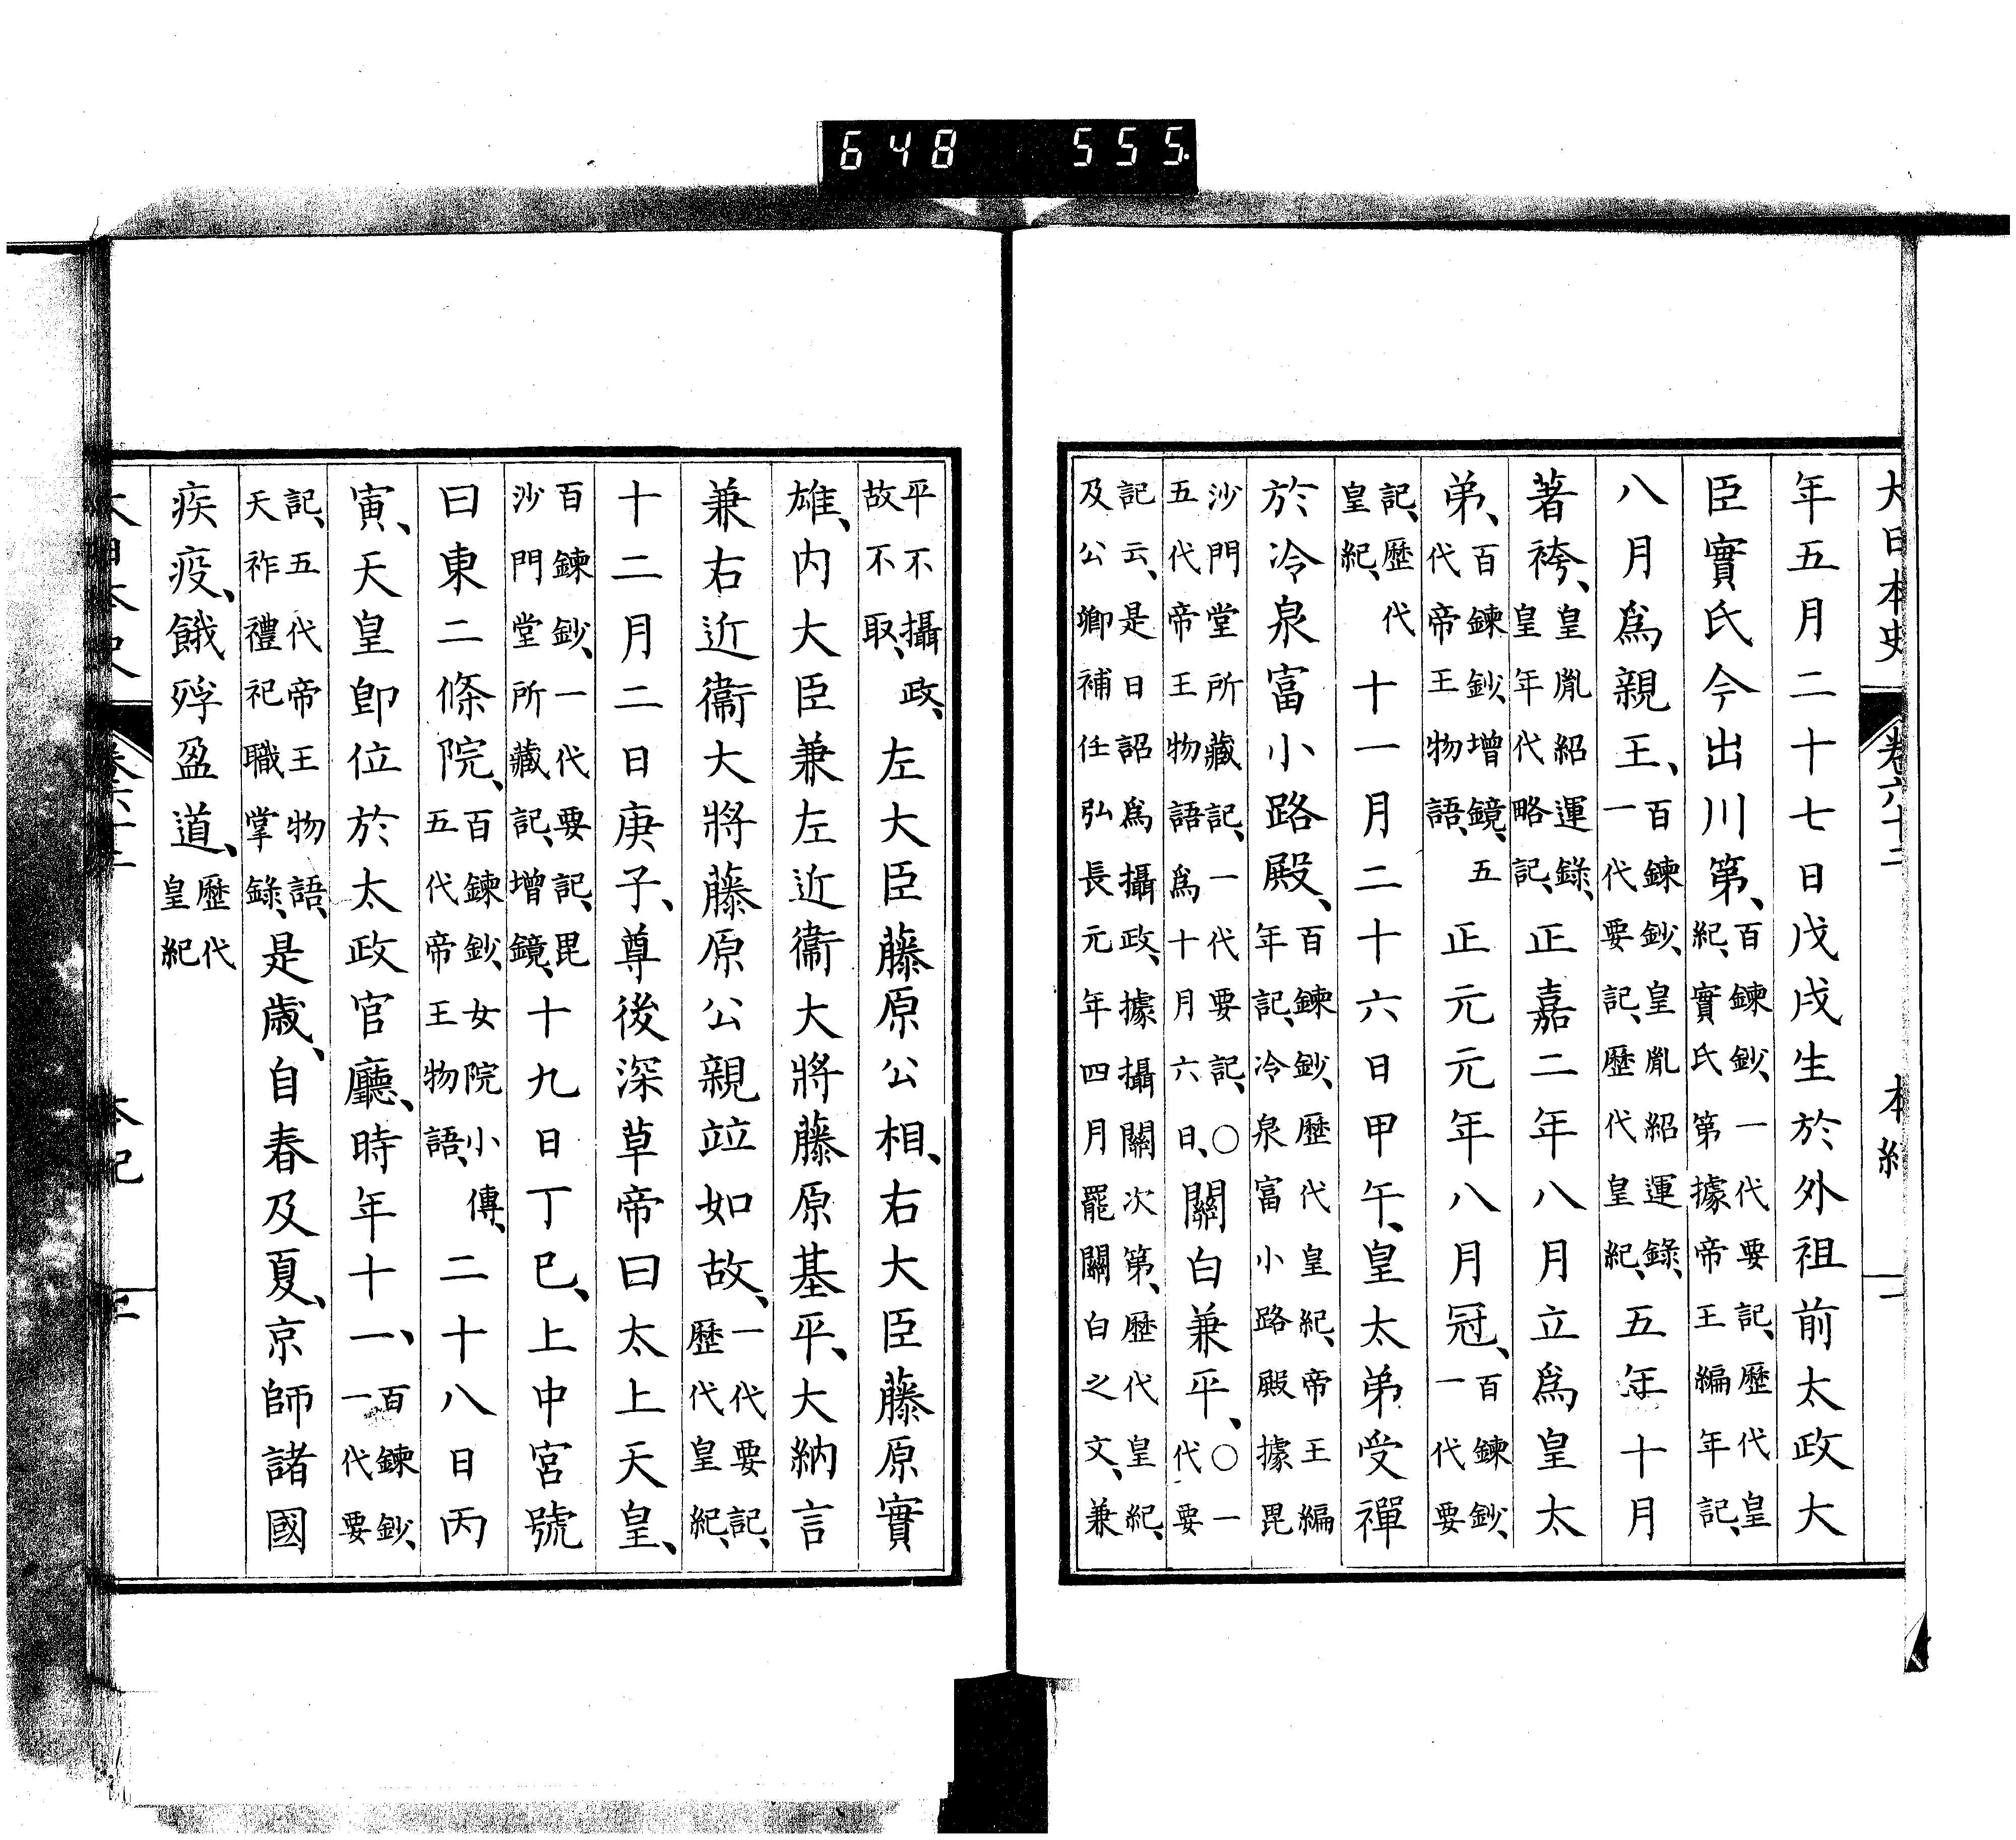 648 555
大日本史 卷六十二 本紀 二
年五月二十七日戊戌生於外祖前太政大
臣實氏今出川第、百鍊鈔、一代要記、歷代皇紀、實氏第據帝王編年記、
八月爲親王、百鍊鈔、皇胤紹運錄、一代要記、歷代皇紀、五年十月
著袴、皇胤紹運錄、皇年代略記、正嘉二年八月立爲皇太
弟、百鍊鈔、增鏡、五代帝王物語、正元元年八月冠、百鍊鈔、一代要
記、歷代皇紀、十一月二十六日甲午、皇太弟受禪
於冷泉富小路殿、百鍊鈔、歷代皇紀、帝王編年記、冷泉富小路殿據毘
沙門堂所藏記、一代要記、○五代帝王物語爲十月六日、關白兼平、○一代要
記云、是日詔爲攝政、據攝關次第、歷代皇紀、及公卿補任弘長元年四月罷關白之文、兼
平不攝政、故不取、左大臣藤原公相、右大臣藤原實
雄、内大臣兼左近衞大將藤原基平、大納言
兼右近衞大將藤原公親竝如故、一代要記、歷代皇紀、
十二月二日庚子、尊後深草帝曰太上天皇、
百鍊鈔、一代要記、毘沙門堂所藏記、增鏡、十九日丁巳、上中宮號
曰東二條院、百鍊鈔、女院小傳、五代帝王物語、二十八日丙
寅、天皇卽位於太政官廳、時年十一、百鍊鈔、一代要
記、五代帝王物語、天祚禮祀職掌錄、是歳、自春及夏、京師諸國
疾疫、餓殍盈道、歷代皇紀
大日本史 卷六十二 本紀 三